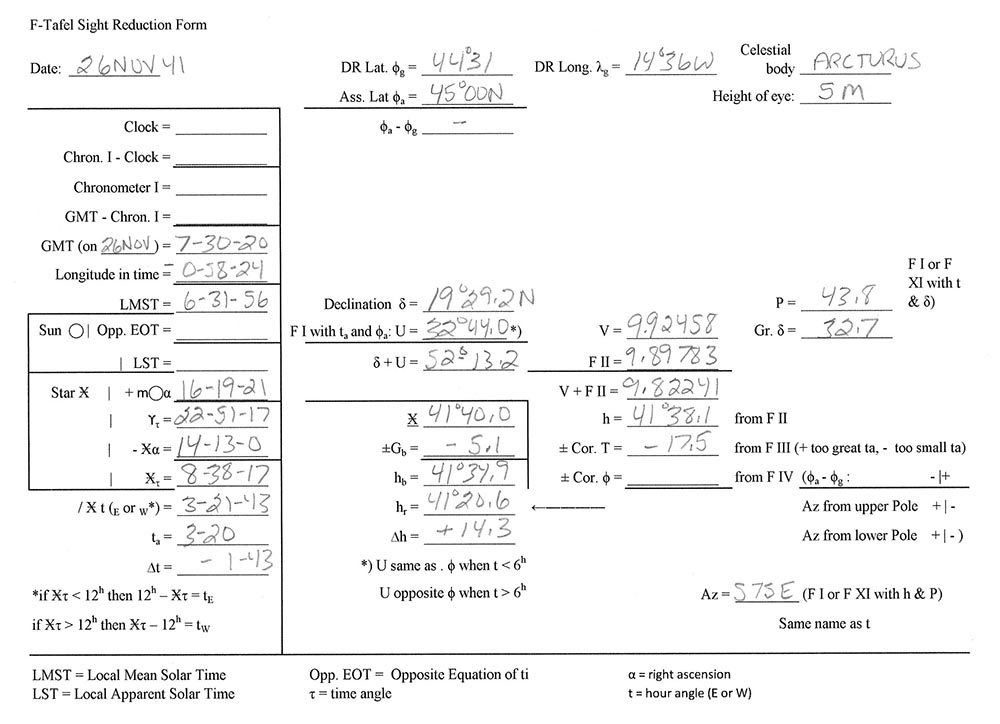 F-Tafel Sight Reduction Form
Date: 26NOV41 DR Lat. ϕg = 44°31 DR Long. λg = 14°36W Celestial body ARCTURUS
Ass. Lat ϕa = 45°00N Height of eye: 5M
ϕa - ϕg —
Clock =
Chron. I - Clock =
Chronometer I =
GMT - Chron. I =
GMT (on 26NOV) = 7-30-20
Longitude in time = - 0-58-24
LMST = 6-31-56
Sun ◯| Opp. EOT =
| LST =
Star Ӿ | + m◯α 16-19-21
| ϒτ = 22-51-17
| - Ӿα = 14-13-0
| Ӿτ = 8-38-17
/ Ӿ t (E or W*) = 3-21-43
ta = 3-20
Δt = - 1-43
*if Ӿτ < 12h then 12h – Ӿτ = tE
if Ӿτ > 12h then Ӿτ – 12h = tW
Declination δ = 19°29.2N
F I with ta and ϕa: U = 32°44.0*)
δ + U = 52°13.2
Ӿ 41°40.0
±Gb = - 5.1
hb = 41°34.9
hr = 41°20.6
Δh = +14.3
*) U same as . ϕ when t < 6h
U opposite ϕ when t > 6h
V = 9.92458
F II = 9.89783
V + F II = 9.82241
h = 41°38.1 from F II
± Cor. T = - 17.5 from F III (+ too great ta, - too small ta)
± Cor. ϕ = from F IV (ϕa - ϕg : - |+
Az from upper Pole + | -
Az from lower Pole + | - )
F I or F XI with t & δ)
P = 43.8
Gr. δ = 32.7
Az = S75E (F I or F XI with h & P)
Same name as t
LMST = Local Mean Solar Time Opp. EOT = Opposite Equation of ti α = right ascension
LST = Local Apparent Solar Time τ = time angle t = hour angle (E or W)